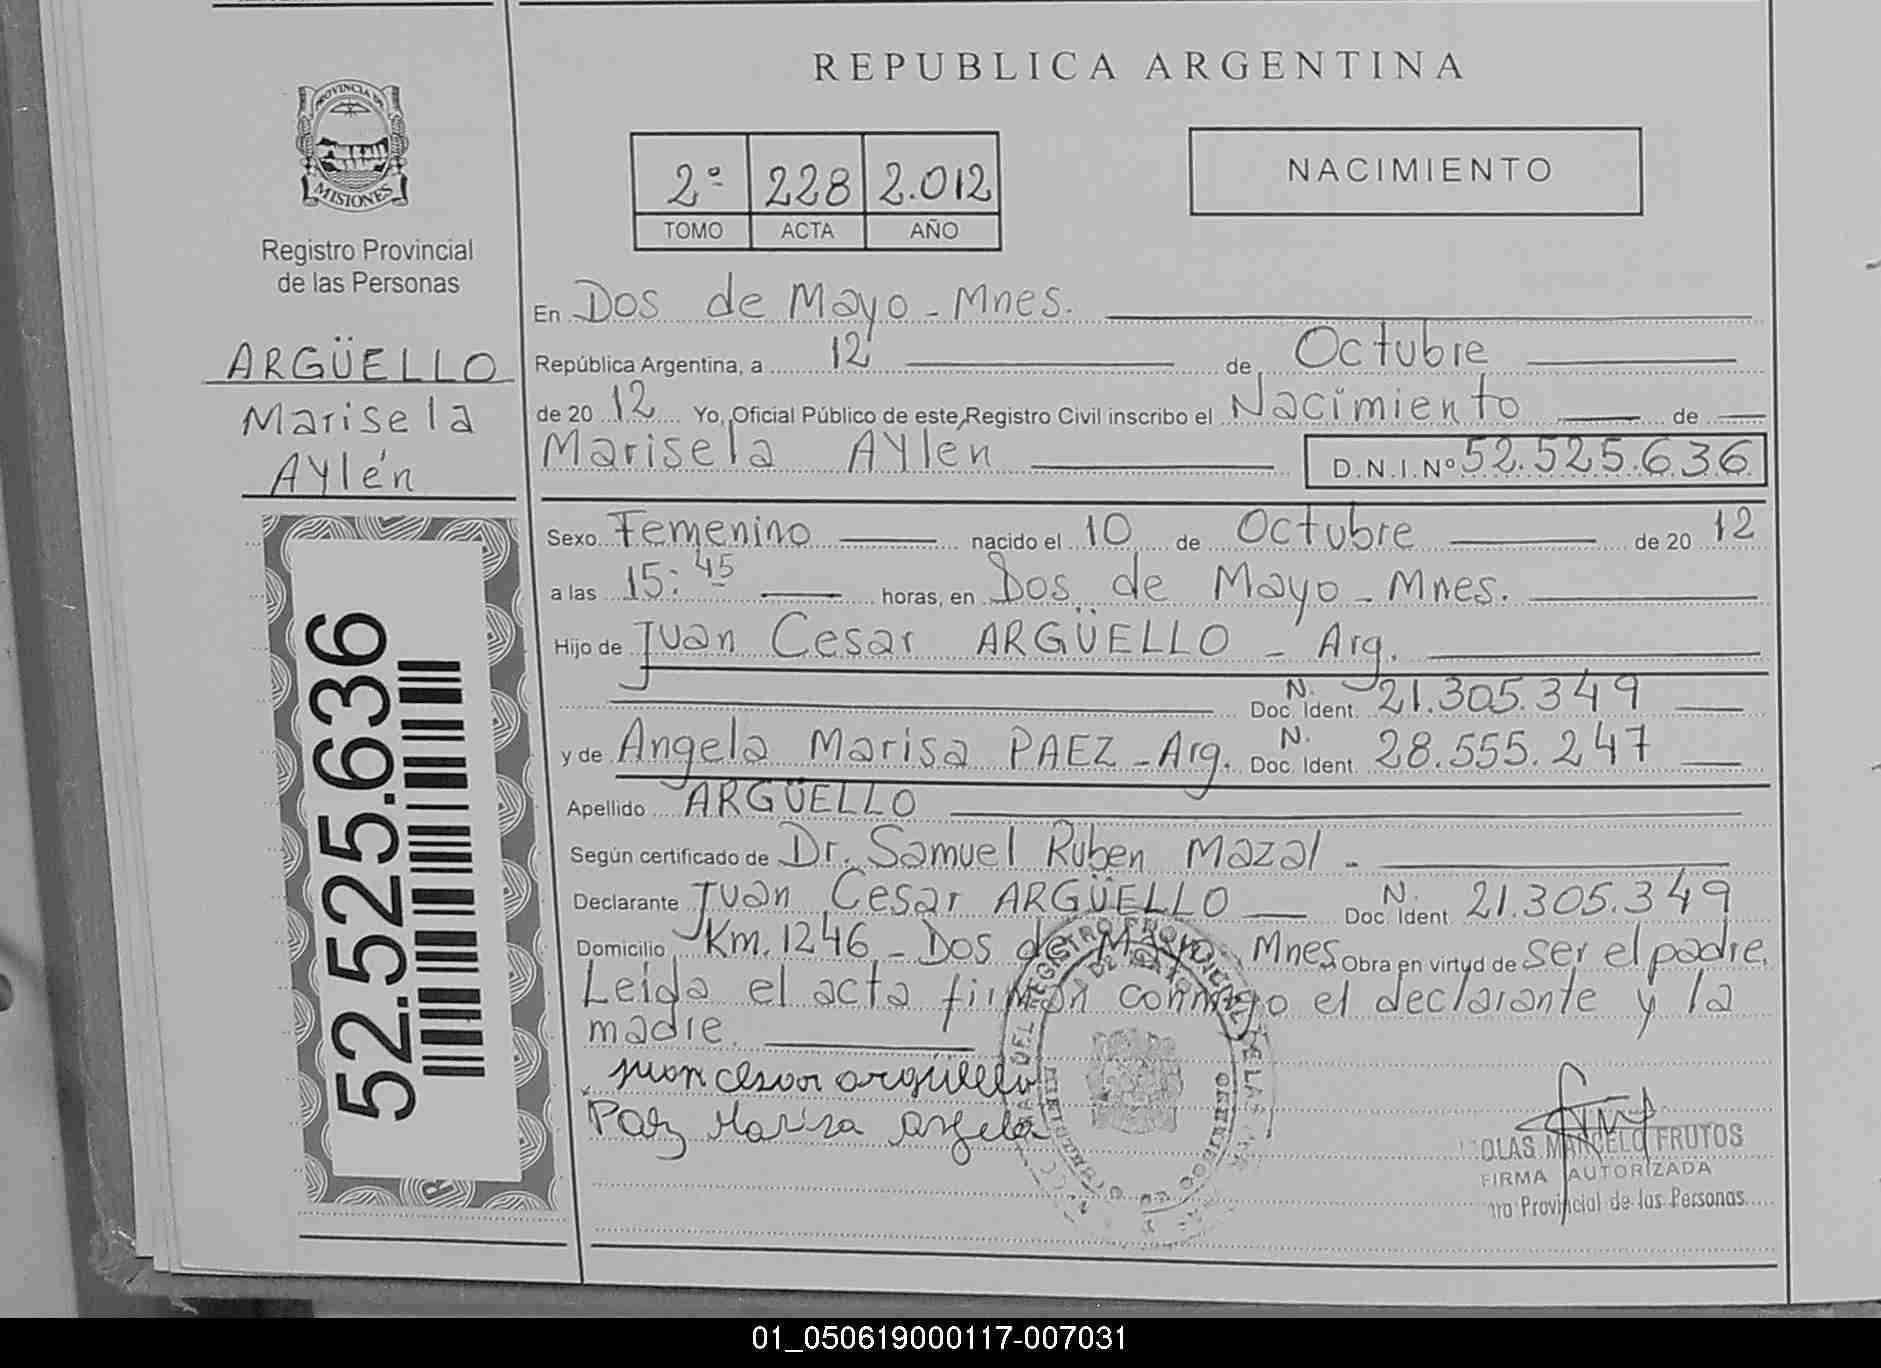 REPUBLICA ARGENTINA
PROVINCIA DE
MISIONES
Registro Provincial
de las Personas
2º 228 2.012
TOMO ACTA AÑO
NACIMIENTO
ARGÜELLO
Marisela
Aylén
52.525.636
En Dos de Mayo - Mnes.
República Argentina, a 12 de Octubre
de 20 12 Yo, Oficial Público de este Registro Civil inscribo el Nacimiento de
Marisela Aylen D.N.I. Nº 52.525.636
Sexo Femenino nacido el 10 de Octubre de 20 12
a las 15:45 horas, en Dos de Mayo - Mnes.
Hijo de Juan Cesar ARGÜELLO - Arg.
Doc. N. Ident. 21.305.349
y de Angela Marisa PAEZ - Arg. Doc. N. Ident. 28.555.247
Apellido ARGÜELLO
Según certificado de Dr. Samuel Ruben Mazal -
Declarante Juan Cesar ARGÜELLO Doc. N. Ident. 21.305.349
Domicilio Km. 1246 - Dos de Mayo Mnes. Obra en virtud de ser el padre.
Leída el acta firman conmigo el declarante y la
madre.
juan cesar argüello
Paez Marisa angela
OLAS MARCELO FRUTOS
FIRMA AUTORIZADA
Provincial de las Personas
01_050619000117-007031